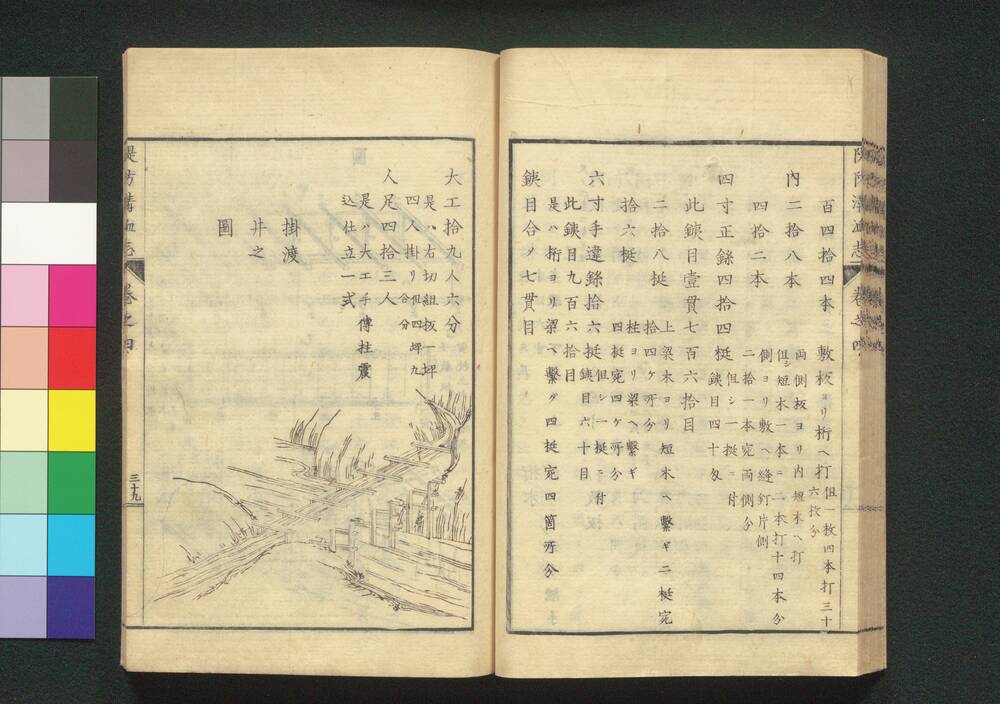 百四拾四本 敷板ヨリ桁ヘ打 但一枚四本打三十
六枚分
内二拾八本 両側板ヨリ内短木ヘ打
但シ短木一本ニ二本打十四本分
四拾二本 側ヨリ敷ヘ縫釘片側
二拾一本宛両側分
四寸正鎹四拾四梃 但シ一挺ニ付
鎹目四十匁
此鎹目壹貫七百六拾目
二拾八挺 上梁木ヨリ短木ヘ繋ギ二梃宛
拾四ケ所分
拾六梃 柱ヨリ梁ヘ繋ギ
四梃宛四ケ所分
六寸手違鎹拾六挺 但シ一挺ニ付
鎹目六十目
此鎹目九百六拾目
是ハ桁ヨリ梁ヘ繋グ四挺宛四箇所分
鎹目合メ七貫目
大工拾九人六分
是ハ右切組板一坪
四人掛リ但四坪九
合分
人足四拾三人
是ハ大工手傳柱震
込仕立一式
掛渡
井之
圖
堤防溝洫志 卷之四
三十九